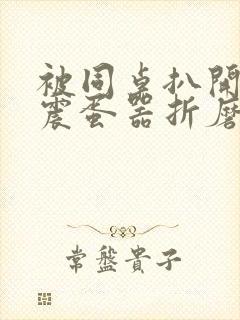 被同桌扒開
震蛋器折磨
常盤貴子